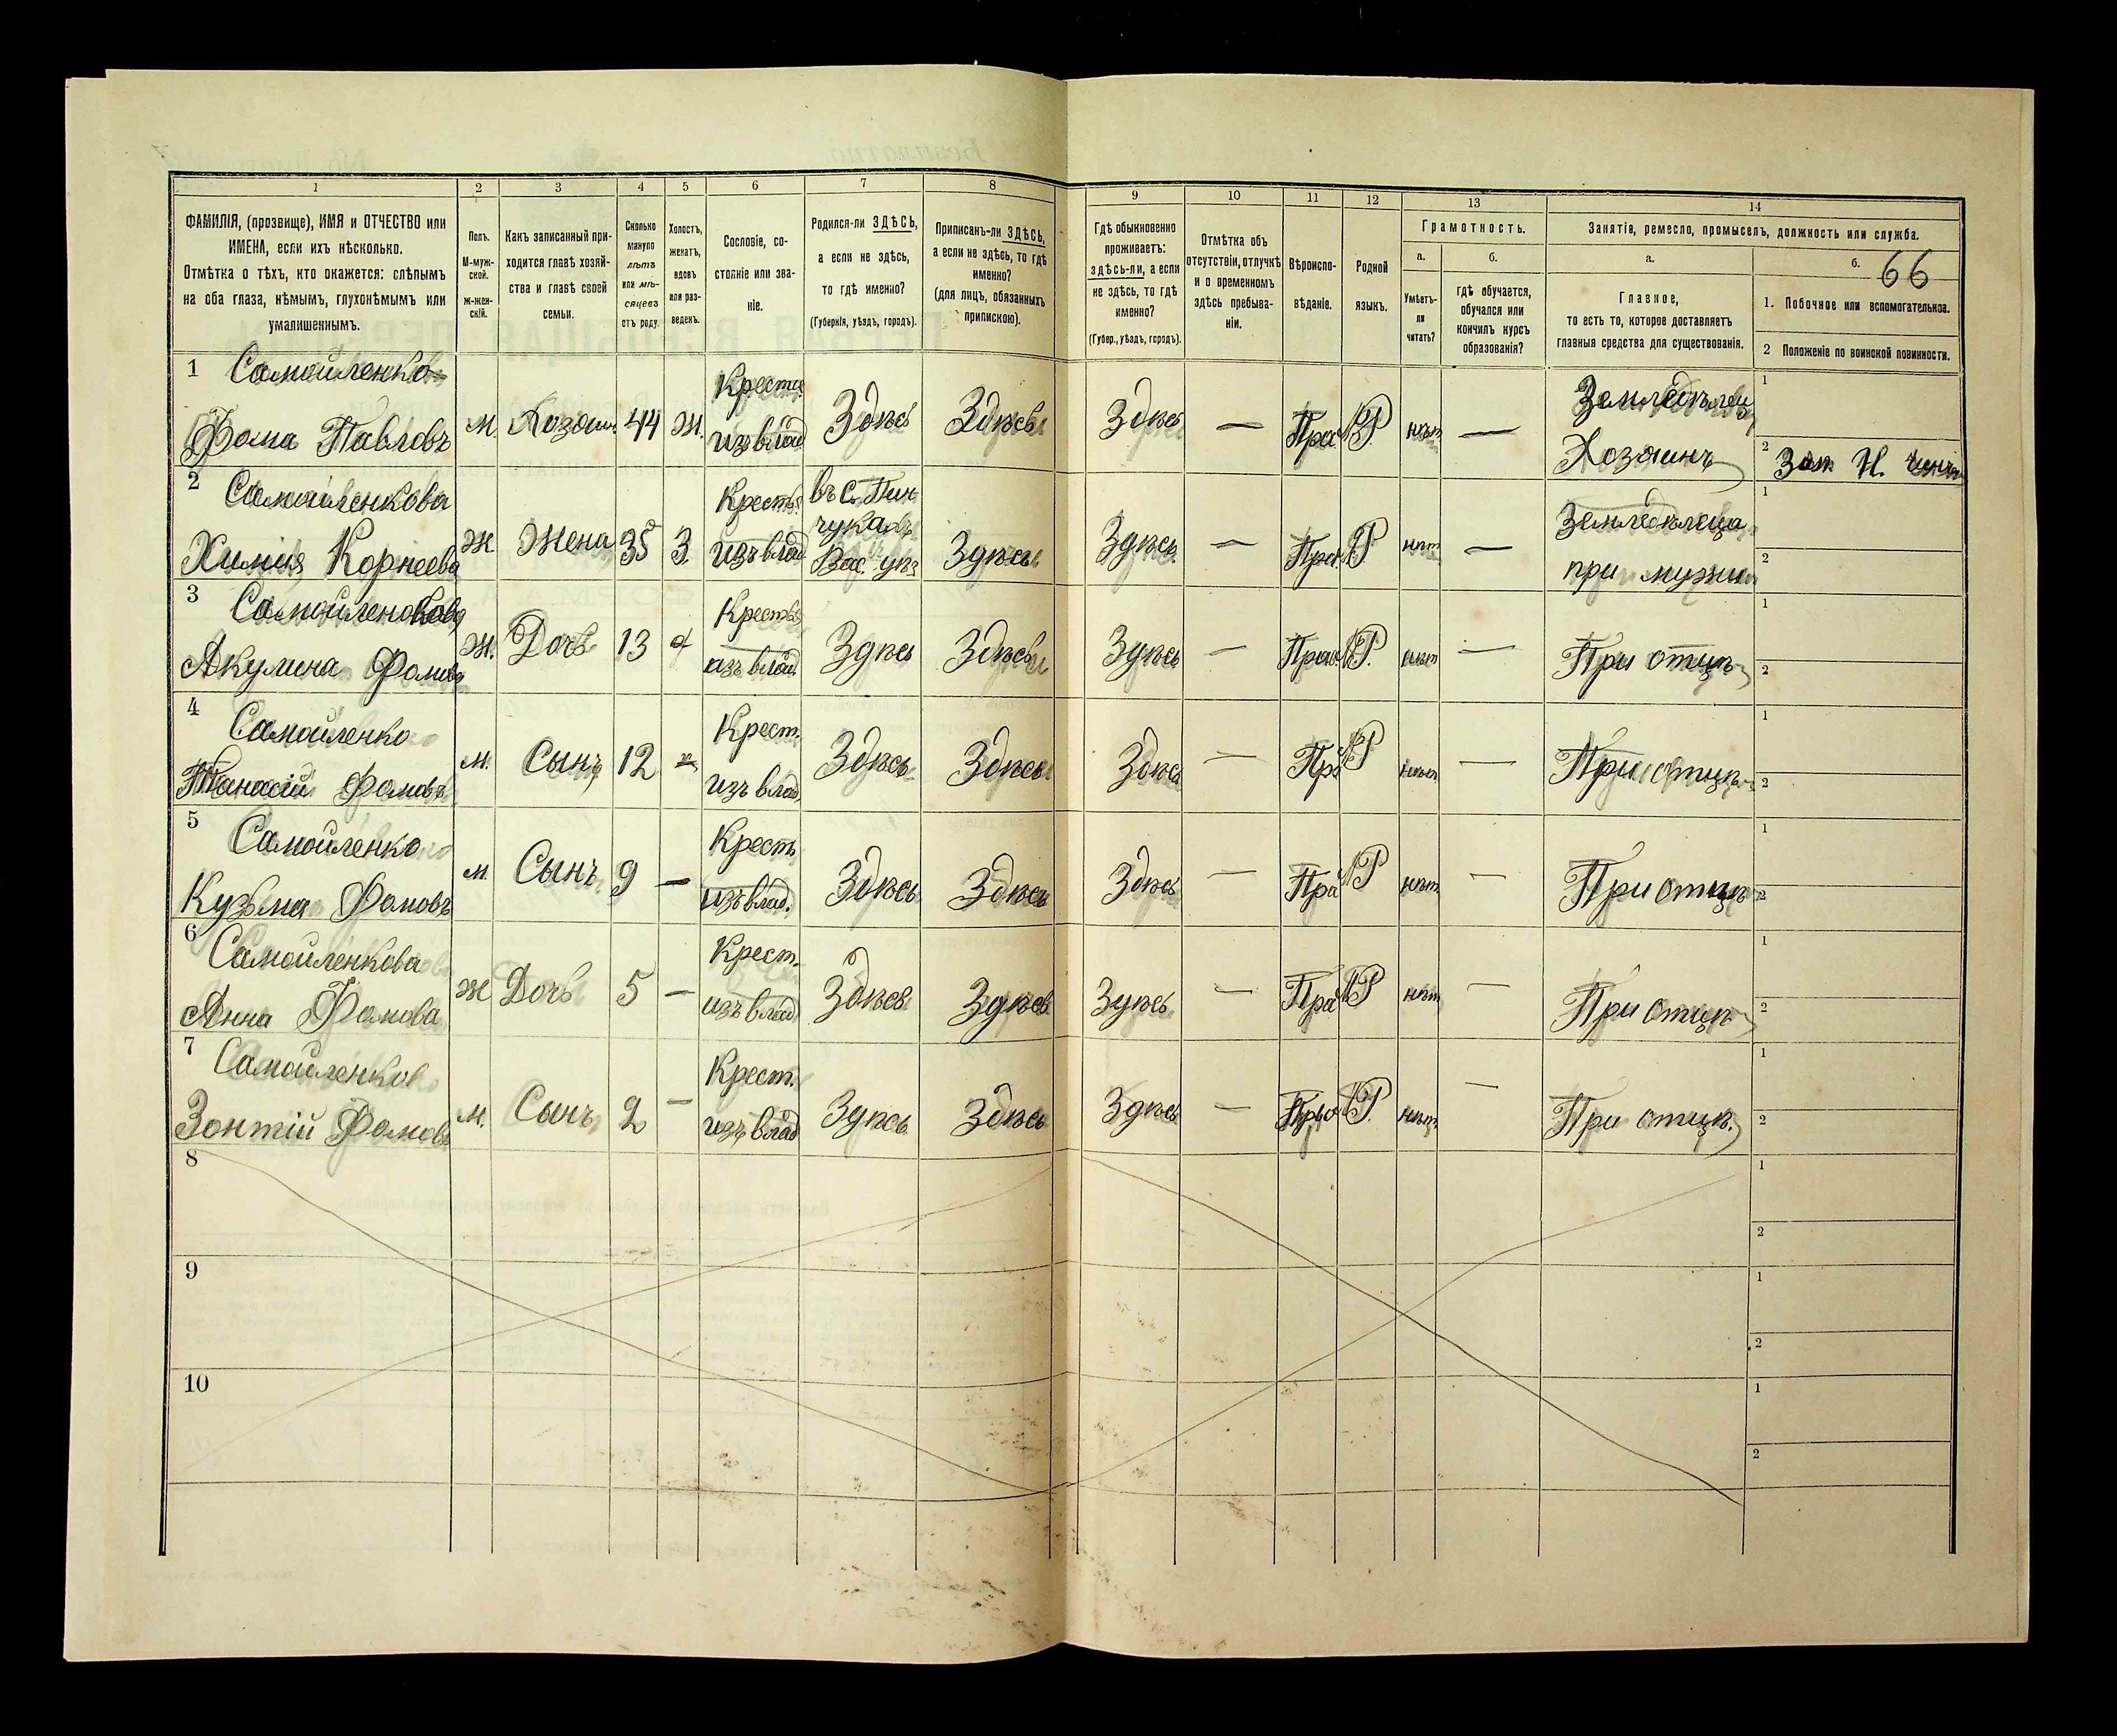 1 2 3 4 5 6 7 8 9 10 11 12 13 14
ФАМИЛІЯ, (прозвище), ИМЯ и ОТЧЕСТВО или
ИМЕНА, если ихъ нѣсколько.
Отмѣтка о тѣхъ, кто окажется: слѣпымъ
на оба глаза, нѣмымъ, глухонѣмымъ или
умалишеннымъ.
Полъ.
М-муж-
ской.
ж-жен-
скій.
Какъ записанный при-
ходится главѣ хозяй-
ства и главѣ своей
семьи.
Сколько
минуло
лѣтъ
или мѣ-
сяцевъ
отъ роду.
Холостъ,
женатъ,
вдовъ
или раз-
веденъ.
Сословіе, со-
стояніе или зва-
ніе.
Родился-ли ЗДѢСЬ,
а если не здѣсь,
то гдѣ именно?
(Губернія, уѣздъ, городъ).
Приписанъ-ли ЗДѢСЬ,
а если не здѣсь, то гдѣ
именно?
(для лицъ, обязанныхъ
припискою).
Гдѣ обыкновенно
проживаетъ:
здѣсь-ли, а если
не здѣсь, то гдѣ
именно?
(Губер., уѣздъ, городъ).
Отмѣтка объ
отсутствіи, отлучкѣ
и о временномъ
здѣсь пребыва-
ніи.
Вѣроиспо-
вѣданіе.
Родной
языкъ.
Грамотность.
а.
Умѣетъ-
ли
читать?
б.
гдѣ обучается,
обучался или
кончилъ курсъ
образованія?
Занятіе, ремесло, промыселъ, должность или служба.
а.
Главное,
то есть то, которое доставляетъ
главныя средства для существованія.
б. 66
1. Побочное или вспомогательное.
2 Положеніе по воинской повинности.
1 Самойленко Крестья. Земледѣлец 1
Фома Павловъ м. Хозяин 44 Ж. изъ влад Здѣсь Здѣсь Здѣсь — Пра М.Р. нѣт — Хозяинъ 2 Зап. Н. Чинъ
2 Самойленкова Крестья. въ с. Пин Земледѣлица 1
чукахъ
Химия Корнеева Ж Жена 35 З. изъ влад Вас. уѣз Здѣсь Здѣсь — Пра М.Р. нѣт — при мужи 2
3 Самойленкова Крестья 1
Акулина Фомова Ж. Дочь 13 изъ влад. Здѣсь Здѣсь Здѣсь — Прав М.Р. нѣт — При отцѣ 2
4 Самойленко Крест. 1
Танасій Фомовъ м. Сынъ 12 изъ влад. Здѣсь Здѣсь Здѣсь — Пра М.Р. нѣт — При отцѣ 2
5 Самойленко Кресть 1
Кузьма Фомовъ м. Сынъ 9 — изъ влад. Здѣсь Здѣсь Здѣсь — Пра М.Р. нѣт — При отцѣ 2
6 Самойленкова Крест. 1
Анна Фомова Ж Дочь 5 — изъ влад Здѣсь Здѣсь Здѣсь — Пра М.Р. нѣт — При отцѣ 2
7 Самойленков Крест. 1
Зонтій Фомовъ м. Сынъ 2 — изъ влад Здѣсь Здѣсь Здѣсь — Пра М.Р. нѣт — При отцѣ. 2
8 1
2
9 1
2
10 1
2